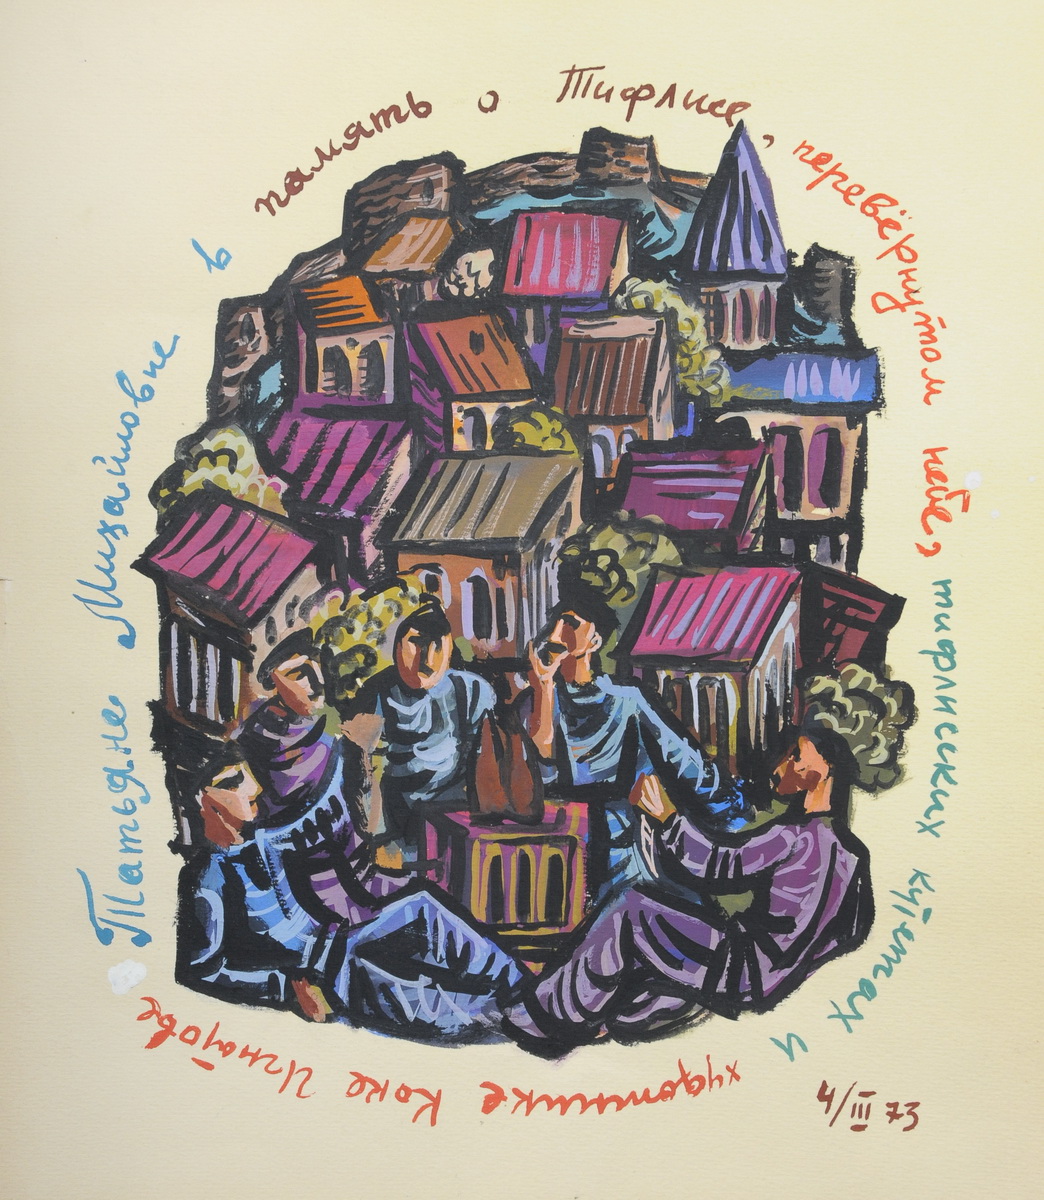 Татьяне Михайловне в
память о Тифлисе, перевёрнутом небе, тифлисских кутежах и
художнике Коке Игнатове
4/III 73